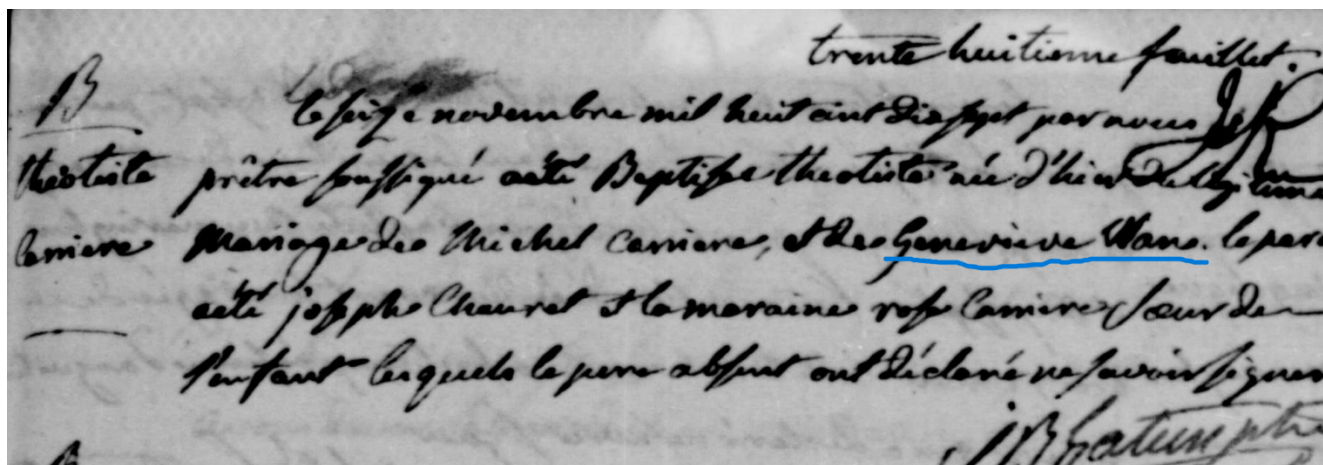 trente huitieme feuillet.
B
le seize novembre mil huit cent dix sept par nous
theotiste prêtre soussigné a été Baptisé theotiste née d'hier du legitime
Carriere Mariage de Michel Carriere, et de Genevieve Wans. le par
a été joseph Chauret et la maraine rose Carriere sœur de
l'enfant lesquels le pere absent ont déclaré ne savoir signer